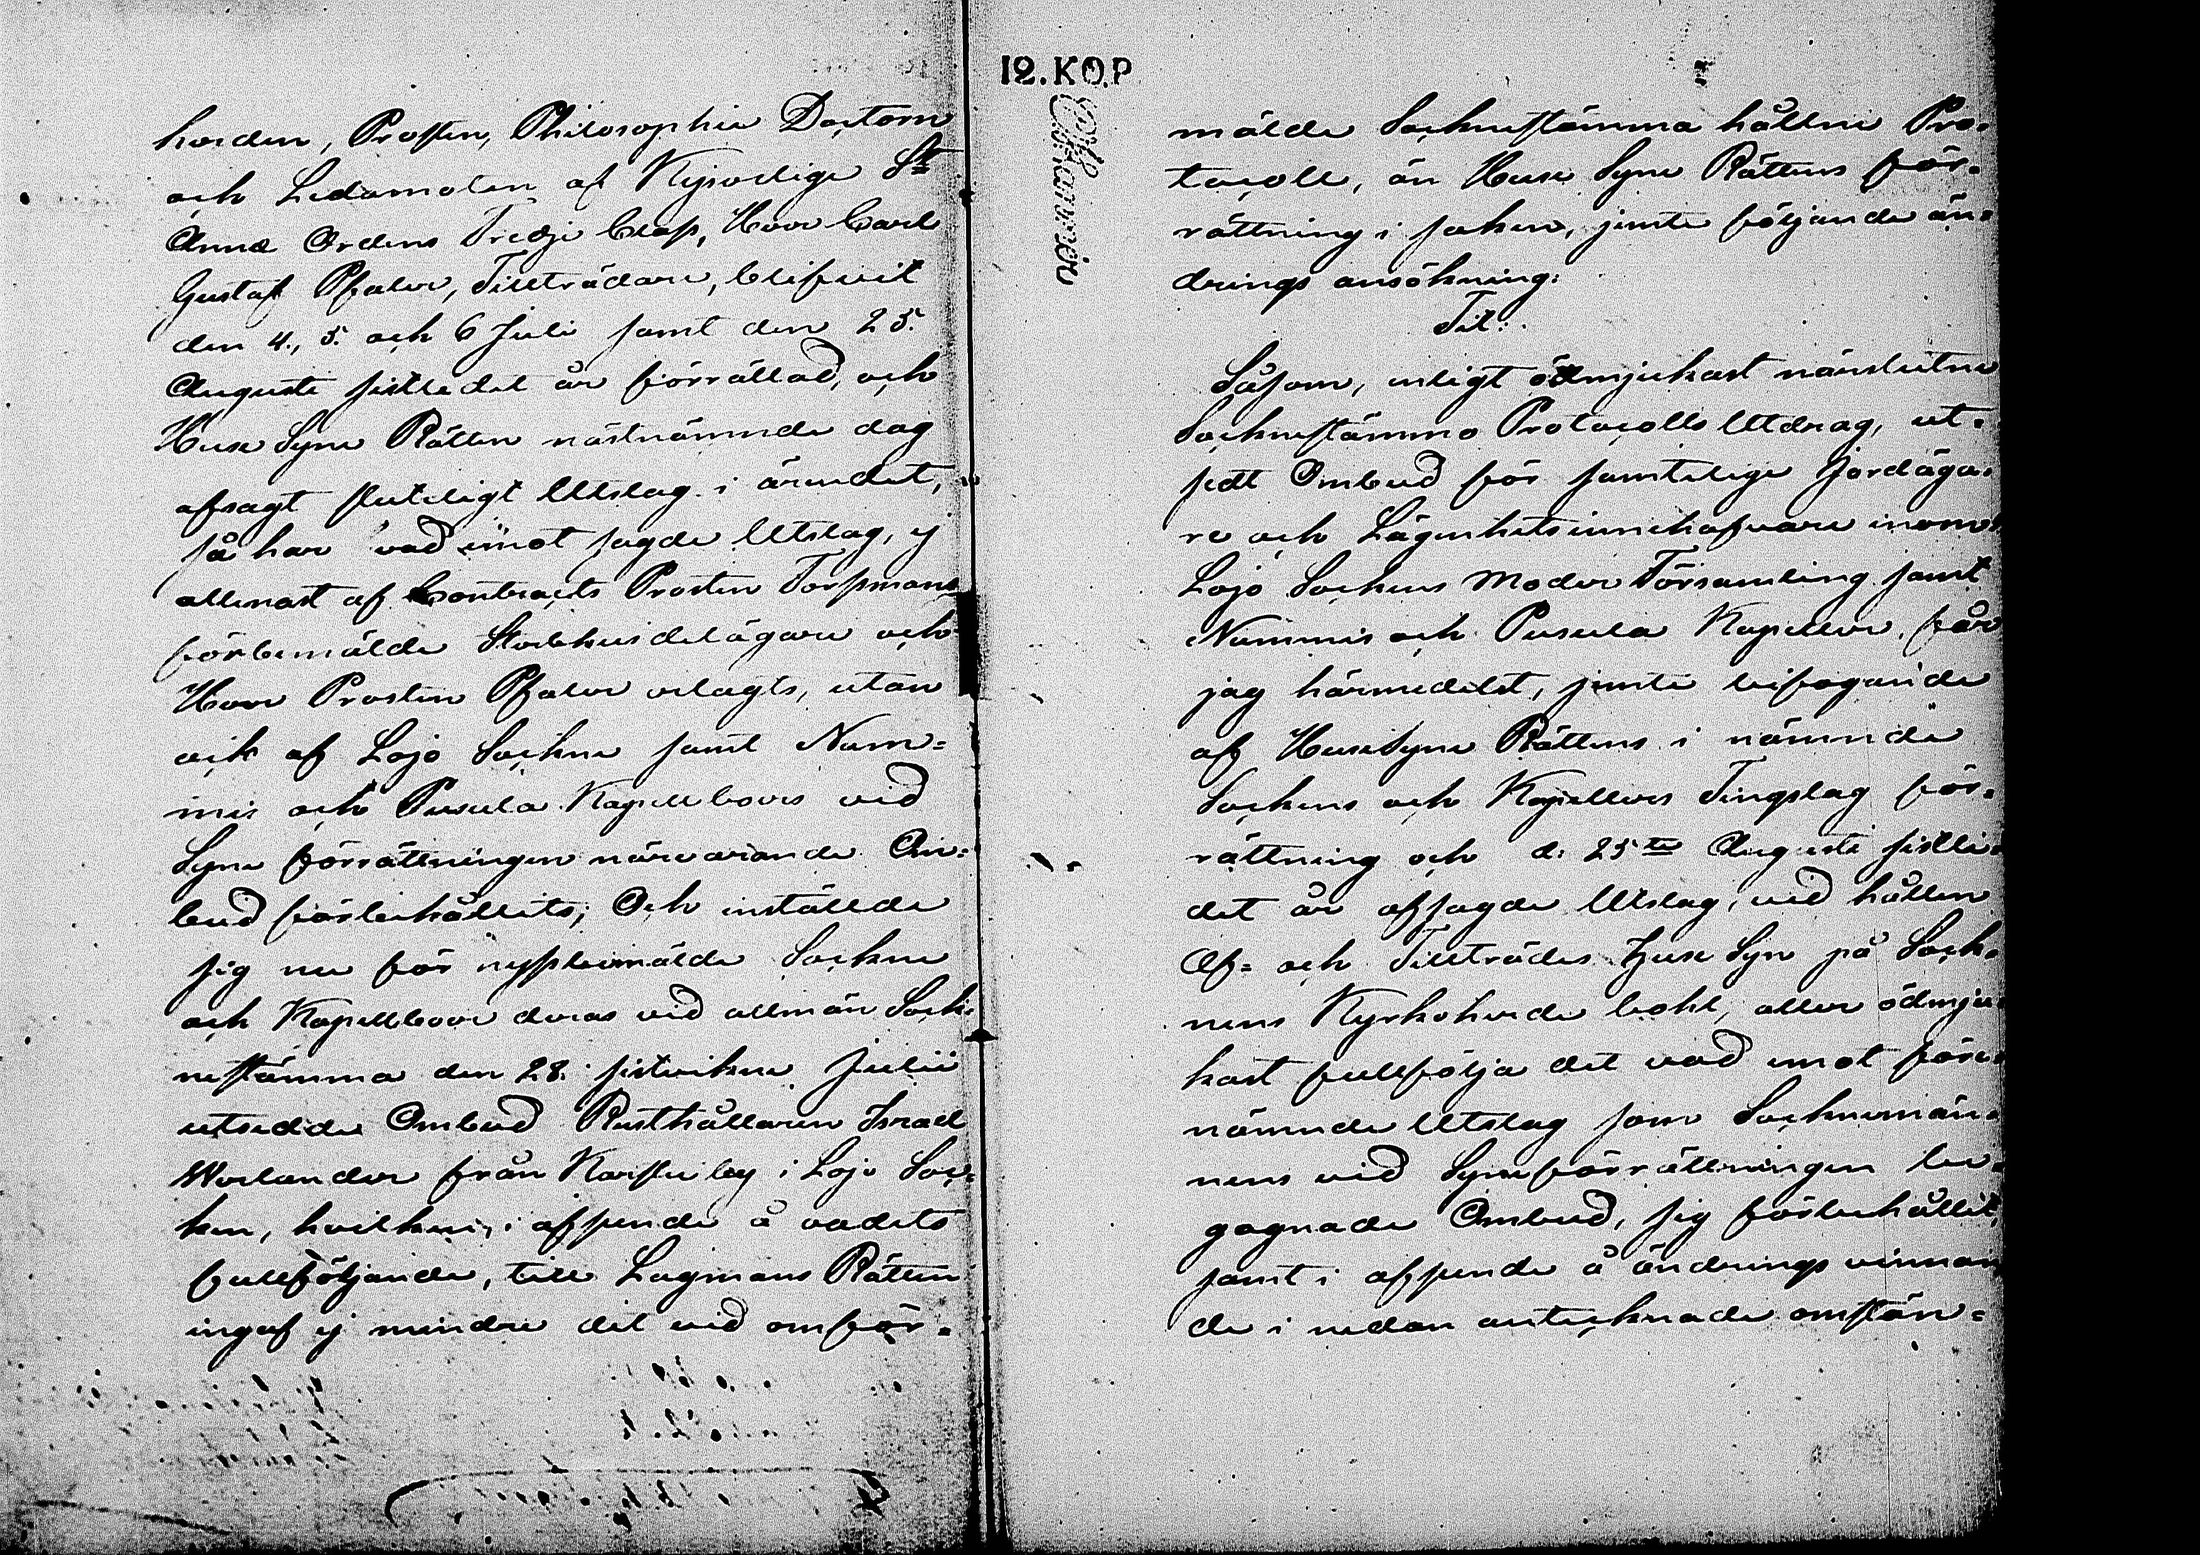 herden, Prosten, Philosophie Doctorn
och Ledamoten af Kejserlige S:t
Annæ Ordens Tredje Class, Herr Carl
Gustaf Pfaler, Tillträdare, blifvit
den 4., 5. och 6 Juli samt den 25.
Augusti sistledet år förrättad, och
Huse Syne Rätten nästnämnde dag
afsagt sluteligt Utslag i ärendet,
så har vad emot sagde Utslag, ej
allenast af Contracts Prosten Forssmans
förbemälde Sterbhusdelägare och
Herr Prosten Pfaler erlagts, utan
ock af Lojo Sockne samt Num=
mis och Pusula Kapellboers vid
Syne förrättningen närvarande Om=
bud förbehållits; Och inställde
sig nu för nyssbemälde Sockne
och Kapellboer deras vid allmän Sock=
nestämma den 28. sistvikne Julii
utsedde Ombud Rusthållaren Israel
Welander från Karstuby i Lojo Soc=
ken, hvilken, i afseende å vadets
fullföljande, till Lagmans Rätten
ingaf ej mindre det vid omför=
12. KOP
mälde Socknestämma hållne Pro=
tocoll, än Huse Syne Rättens för=
rättning i saken, jemte följande än=
drings ansökning:
Tit:.
Såsom, enligt ödmjukast närslutne
Socknestämmo Protocolls Utdrag, ut=
sedt Ombud för samtelige Jordäga=
re och Lägenhetsinnehafvare inom
Lojo Sockens Moder Församling samt
Nummis och Pusula Kapeller, får
jag härmedelst, jemte bifogande
af HuseSyne Rättens i nämnde
Sockens och Kapellers Tingslag för=
rättning och d: 25te Augusti sistle=
det år afsagde Utslag, vid hållen
Af= och Tillträdes Huse Syn på Sock=
nens Kyrkoherde bohl, aller ödmju=
kast fullfölja det vad emot före=
nämnde Utslag som Sockenmän=
nens vid Syneförrättningen be=
gagnade Ombud, sig förbehållit,
samt i afseende å ändrings vinnan
de i nedan antecknade omstän=